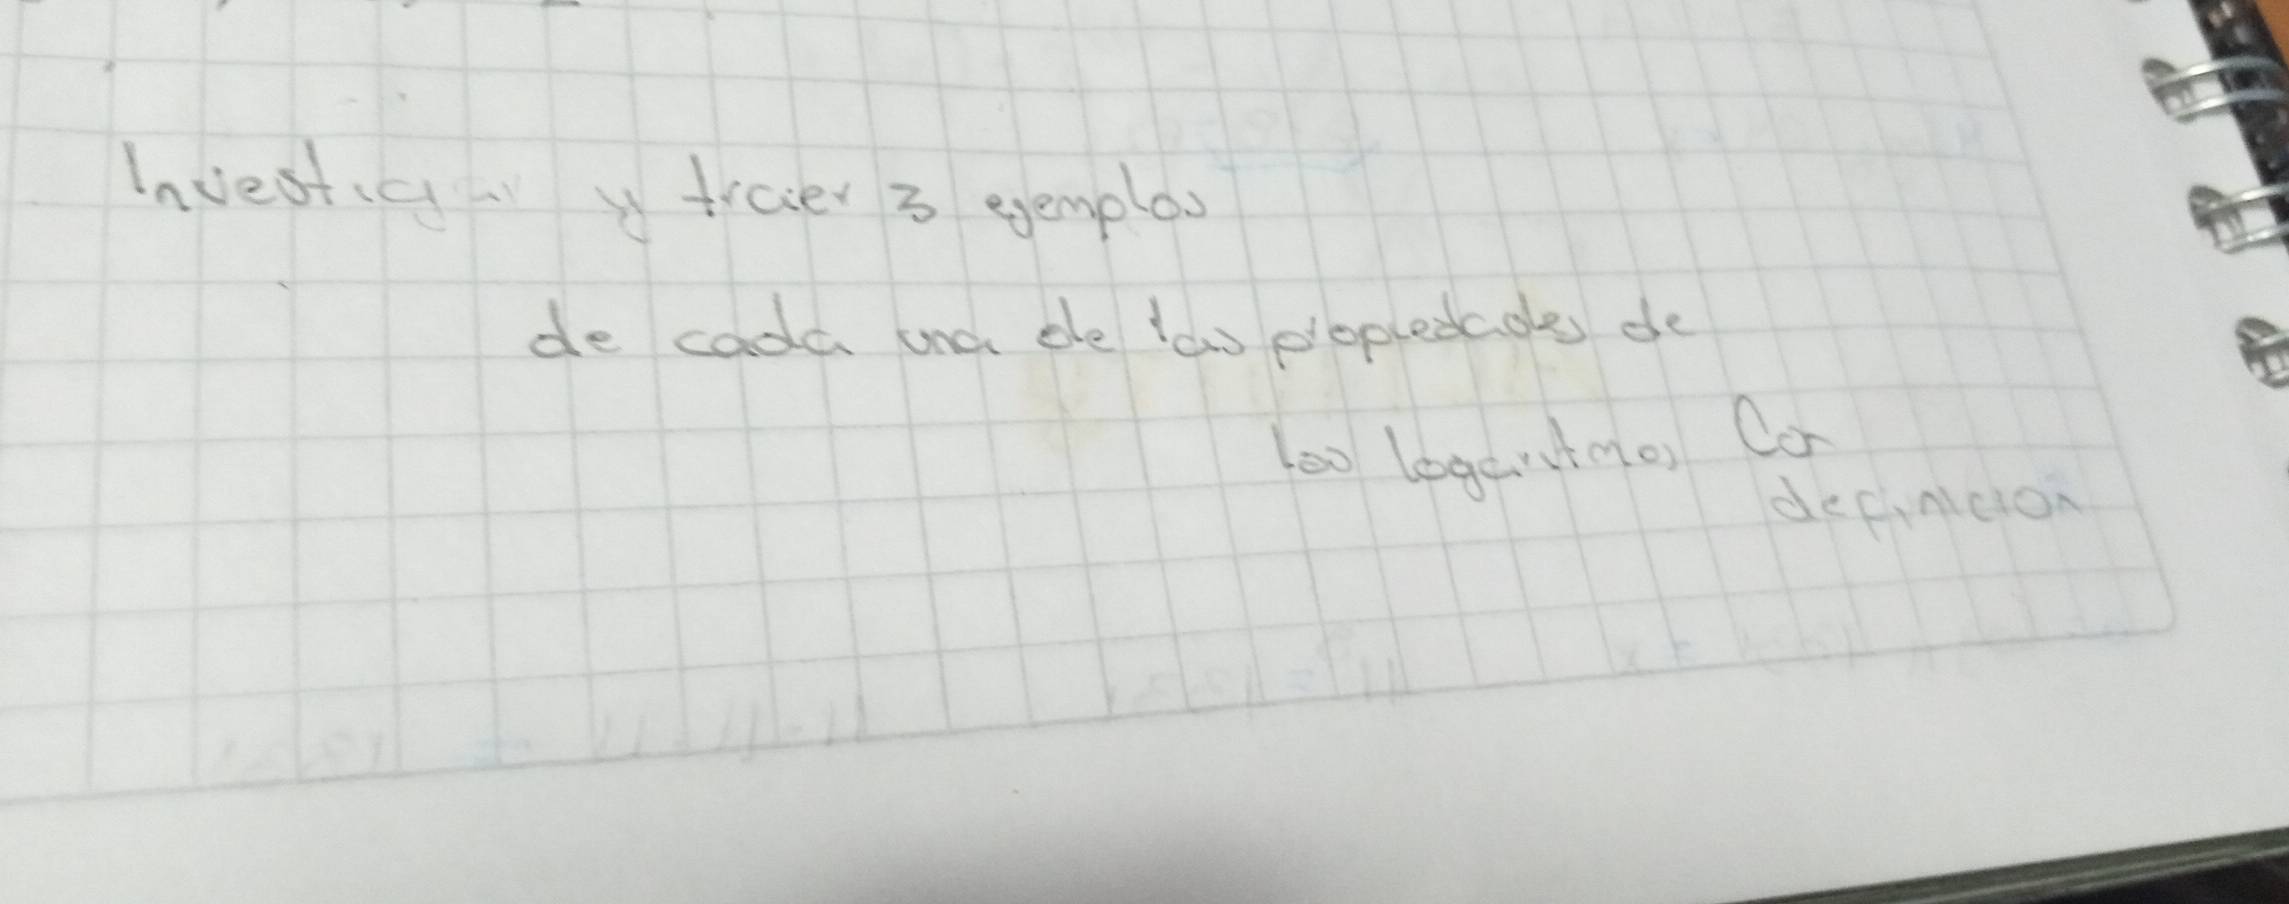 Investigar y traer 3 ejemplos
de cada una de las propiedades de
los logaritmos Con
definicion